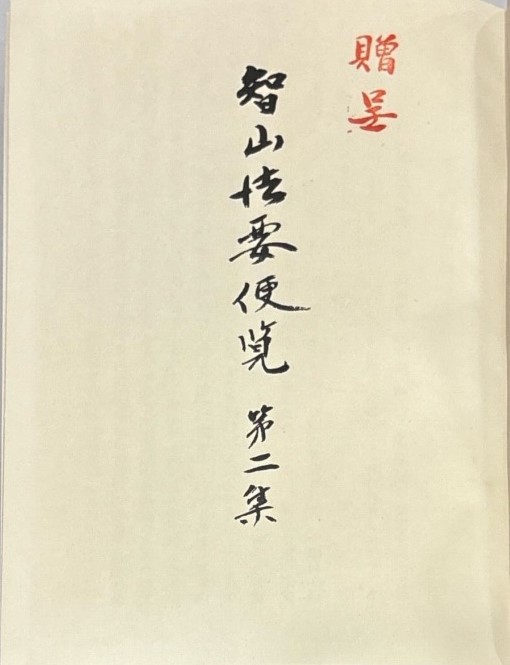 贈呈
智山法要便覧 第二集